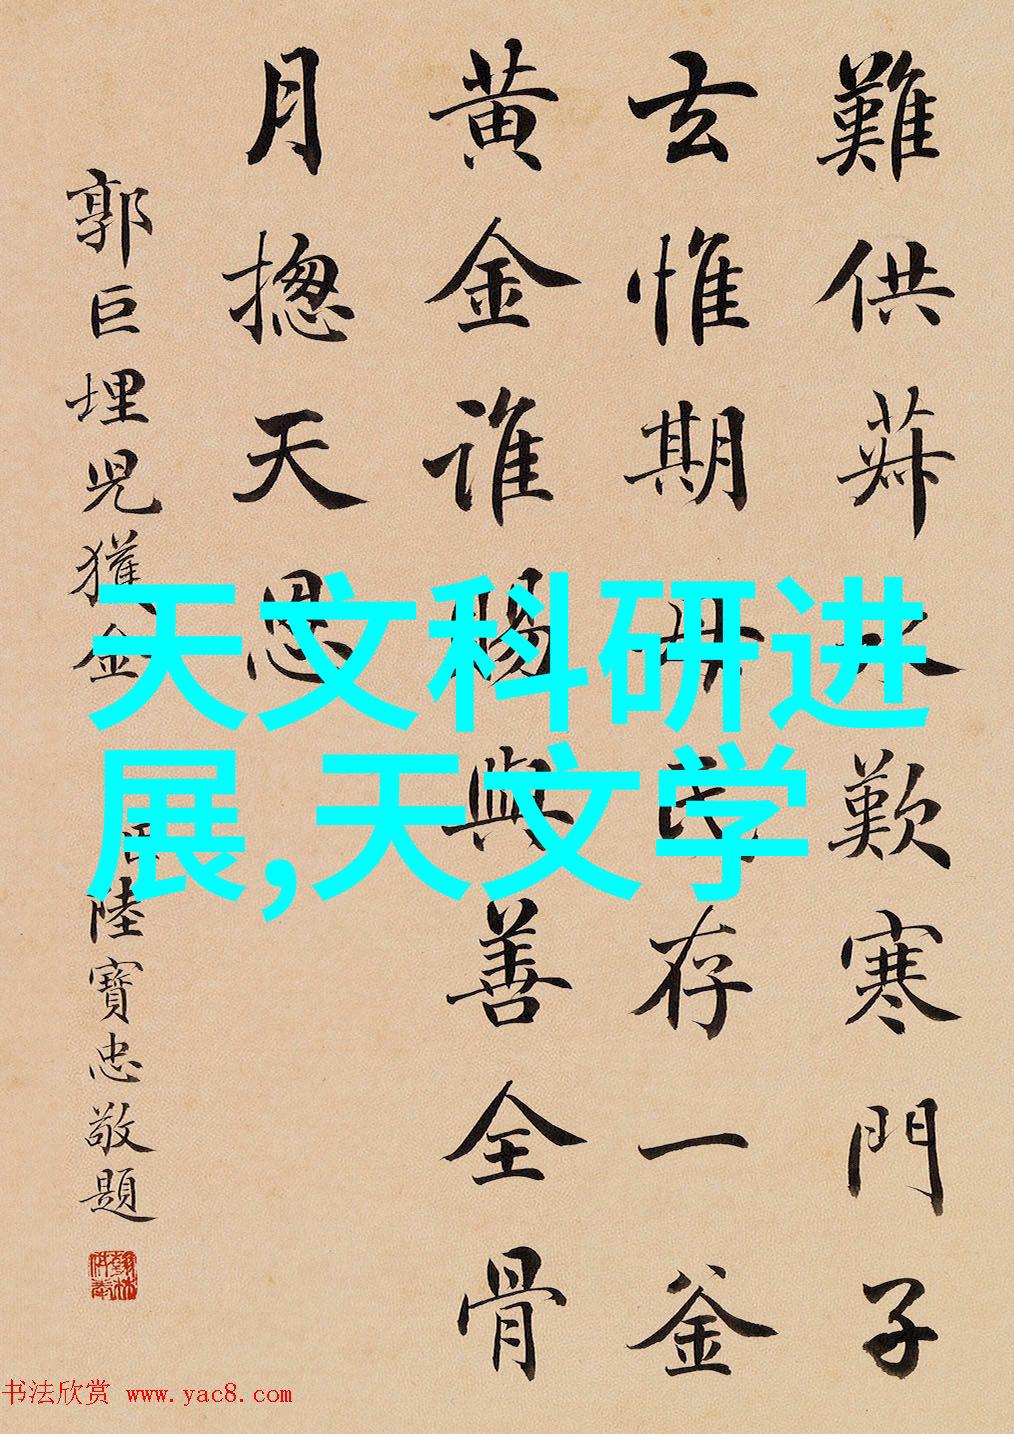 難供菽水歎寒門子
玄惟期母民存一釜
黄金谁賜與善全骨
月揔天恩
郭巨埋兒獲金
臣陸寶忠敬題
天文科研进
展,天文学
书法欣赏 www.yac8.com